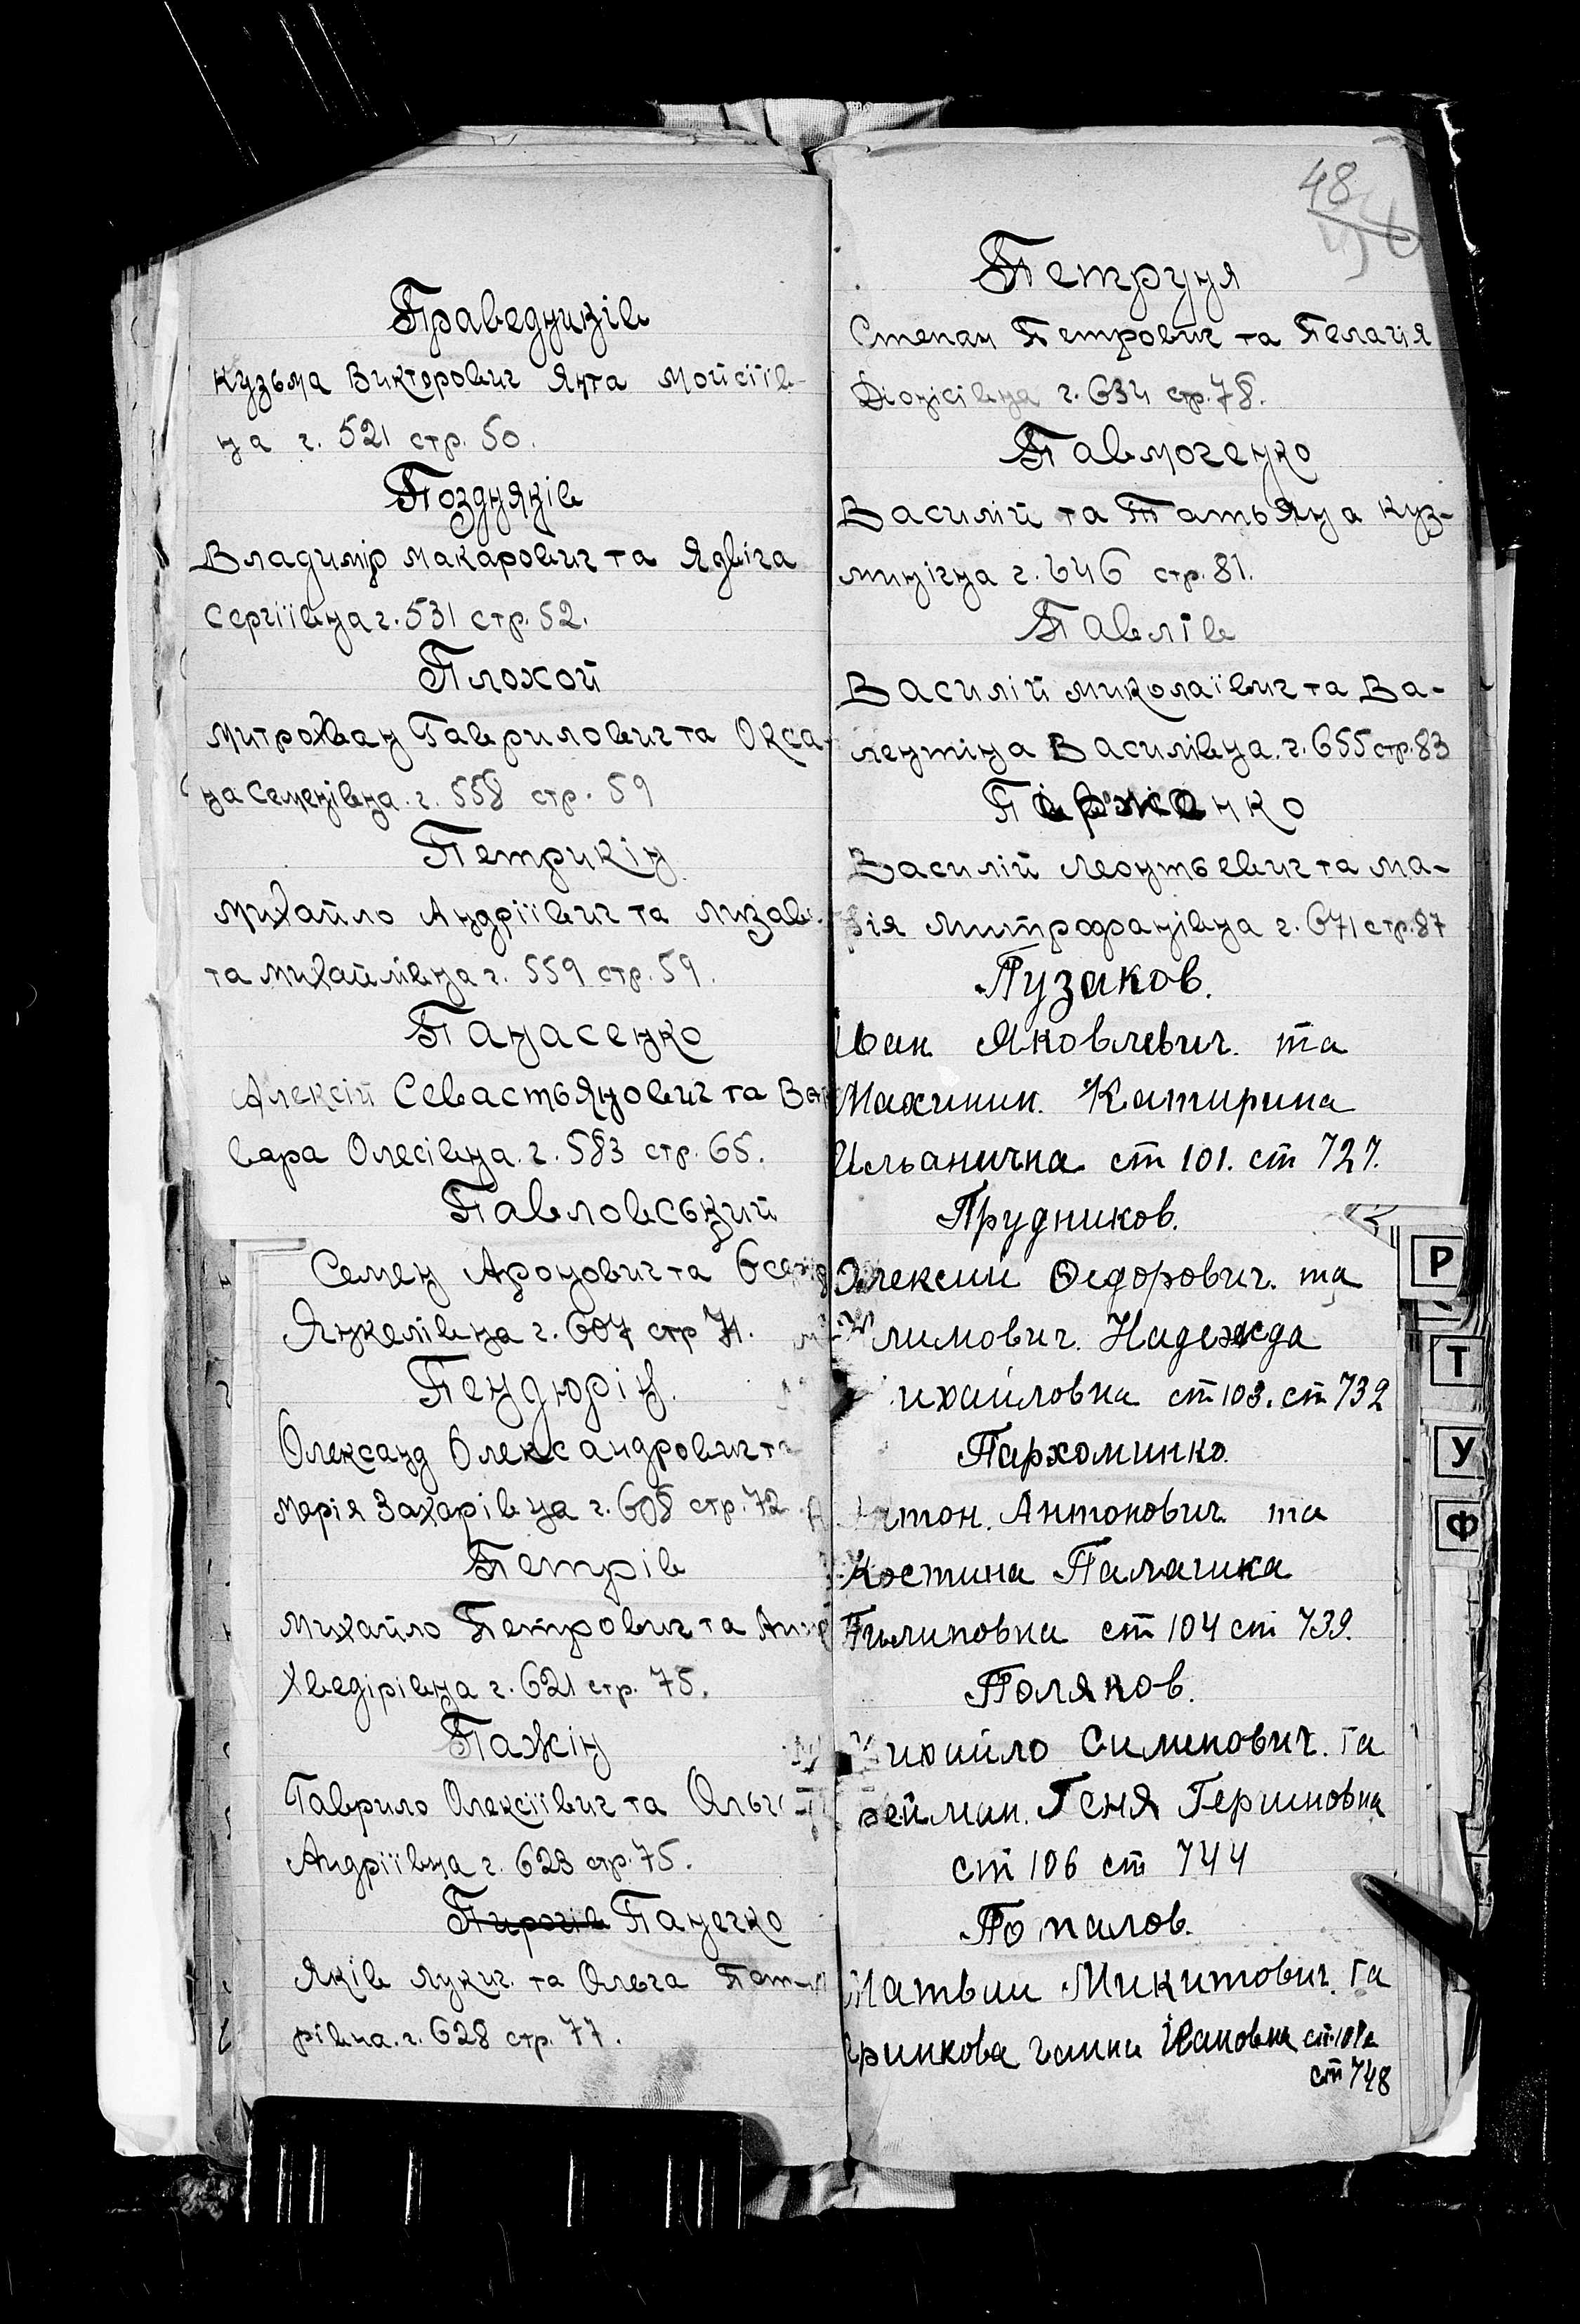 Праведників
Кузьма Викторович Янта Мойсіїв-
на г. 521 стр. 50.
Поздняків
Владимір Макарович та Ядвіга
Сергіївна г. 531 стр. 52.
Плохой
Митрохван Гаврилович та Окса-
на Семенівна. г. 558 стр. 59
Петрикін
Михайло Андріївич та Лизаве-
та Михайлівна г. 559 стр. 59.
Панасенко
Алексій Севастьянович та Вар
вара Олесівна. г. 583 стр. 65.
Павловський
Семен Аронович та
Янкелівна г. 607 стр 71.
Пендюрін.
Олександ Олександрович та
Марія Захарівна г. 608 стр. 72
Петрів
Михайло Петрович та
Хведірівна г. 621 стр. 75.
Пажін
Гаврило Олексіївич та Ольга
Андріївна г. 623 стр. 75.
Пирогів Панечко
Яків Лукич. та Ольга Пет-
рівна. г. 628 стр. 77.
48
Петруня
Степан Петрович та Пелагія
Діонісівна г. 634 стр. 78.
Павмоченко
Василій та Татьяна Куз-
минічна г. 646 стр. 81.
Павлів
Василій Миколаївич та Ва-
лентіна Василівна. г. 655 стр. 83
Василій Леонтьевич та Ма-
рія Митрофанівна г. 671 стр. 87
Пузаков.
Іван Яковлевич. та
Махинин. Катирина
Ильанична ст 101. ст 727.
Прудников.
Олексий Федорович. та
Климович. Надежда
ихайловна ст 103. ст 732
Пархоминко.
Антон. Антонович. та
Костина Палагика
Пилиповна ст 104 ст 739.
Поляков.
Михайло Симинович. та
ейман. Геня Гершновна
ст 106 ст 744
Попалов.
Матвии Микитович. та
Гринкова ганна Івановна ст. 108
ст 748
Р
Т
У
Ф